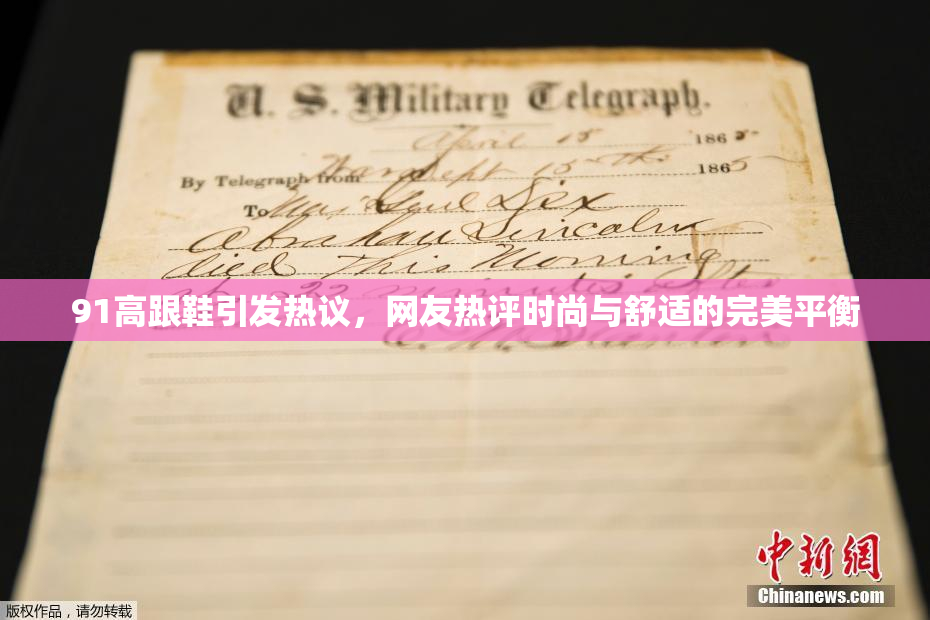 U. S. Military Telegraph.
April 15 1865
By Telegraph from War Dept 15th 1865
To Maj Genl Dix
Abraham Lincoln
died This Morning
at 22 minutes after
91高跟鞋引发热议，网友热评时尚与舒适的完美平衡
E. M. Stanton
中新网
Chinanews.com
版权作品，请勿转载